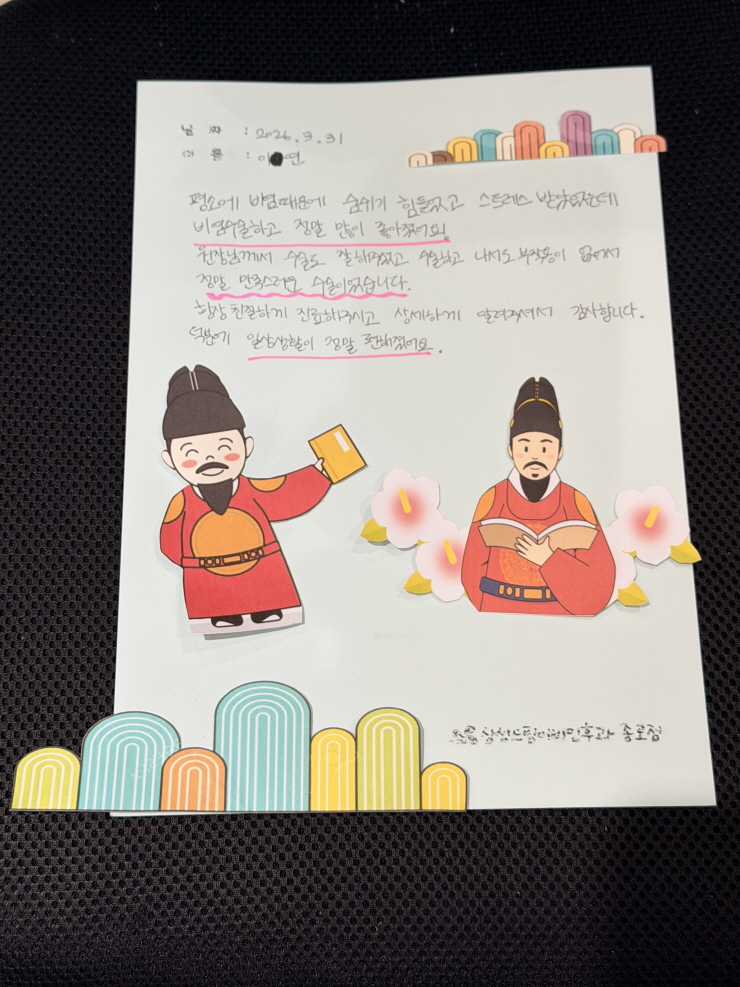 날 짜 : 2026.3.31
이 름 : 이 연
평소에 비염때문에 숨쉬기 힘들었고 스트레스 받았었는데
비염수술하고 정말 많이 좋아졌어요!
원장님께서 수술도 잘해주셨고 수술하고 나서도 부작용이 없어서
정말 만족스러운 수술이었습니다.
항상 친절하게 진료해주시고 상세하게 알려주셔서 감사합니다.
덕분에 일상생활이 정말 편해졌어요.
이비인후과 종로점